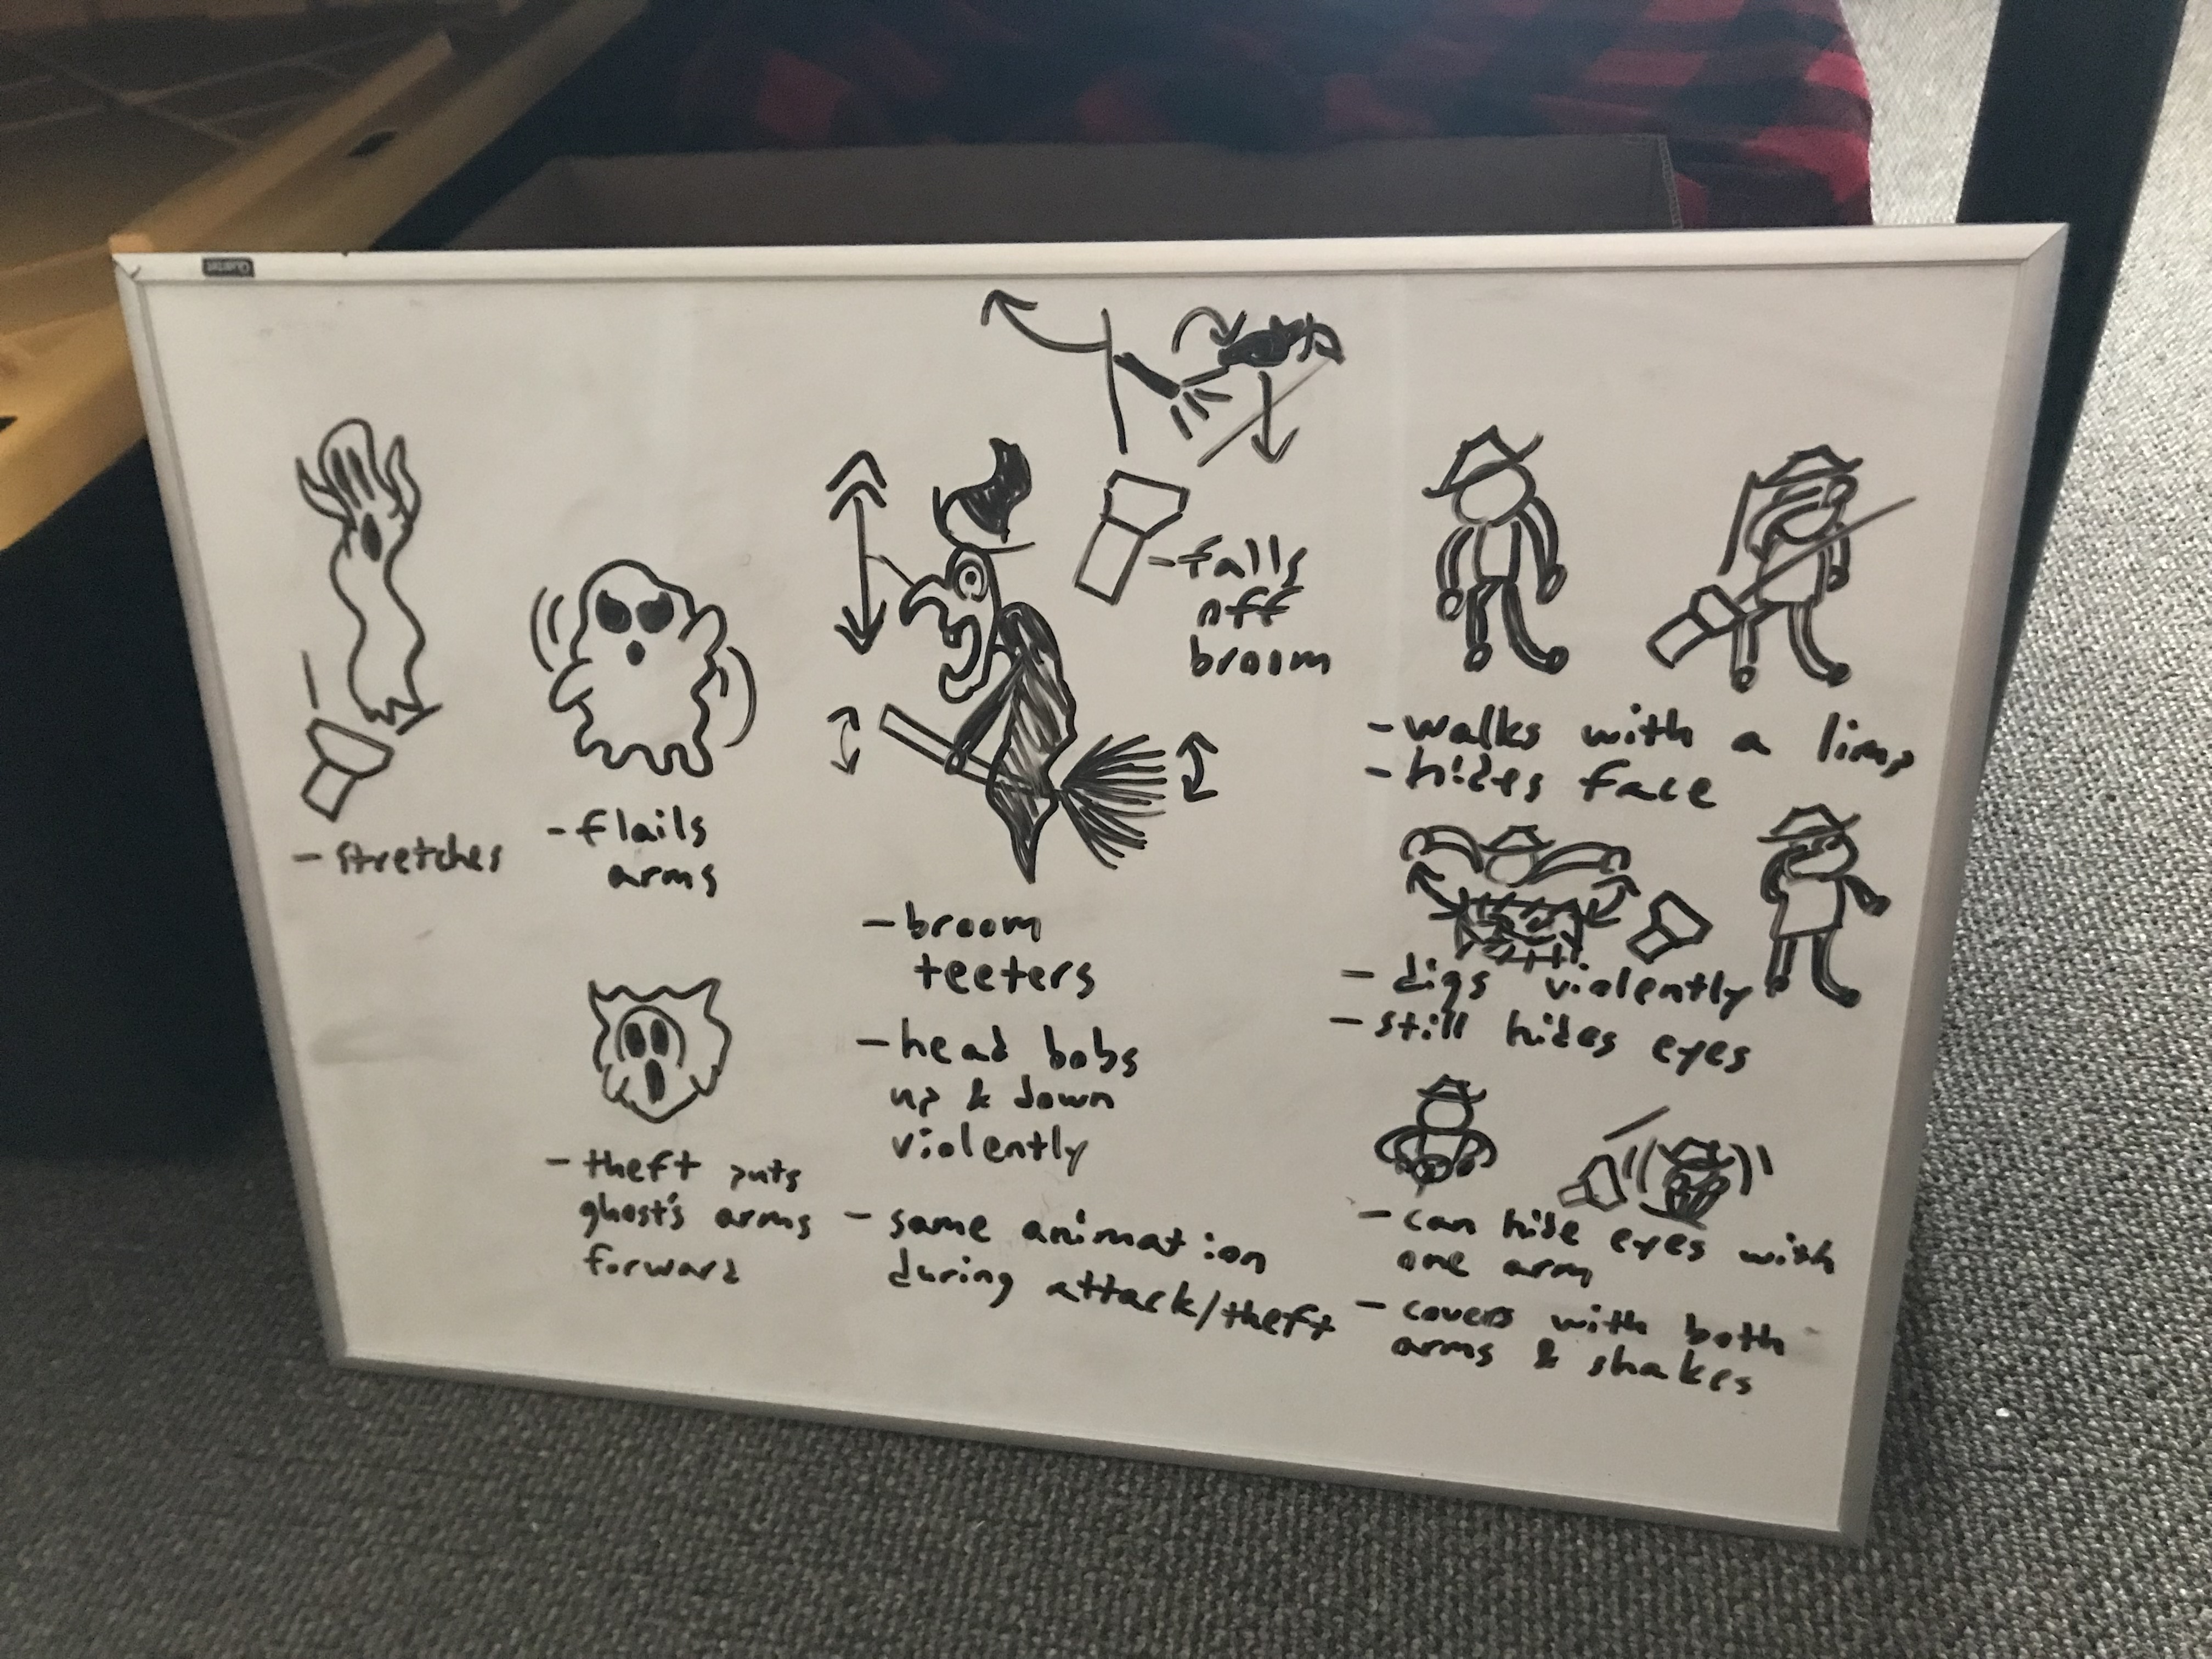 - stretches
- flails
arms
- theft puts
ghost's arms
forward
- falls
off
broom
- broom
teeters
- head bobs
up & down
violently
- same animation
during attack/theft
- walks with a limp
- hides face
- digs violently
- still hides eyes
- can hide eyes with
one arm
- covers with both
arms & shakes
Quartet